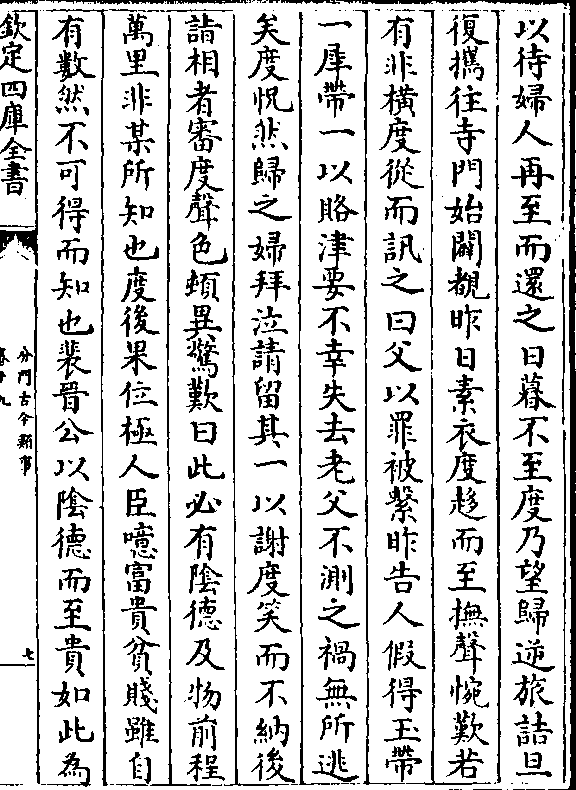 以待婦人再至而還之日暮不至度乃望歸逆旅詰旦
復攜往寺門始闢覩昨日素衣度趍而至撫聲惋歎若
有非橫度從而訊之曰父以罪被繫昨告人假得玉帶
一犀帶一以賂津要不幸失去老父不測之禍無所逃
矣度怳然歸之婦拜泣請留其一以謝度笑而不納後
詣相者審度聲色頓異驚歎曰此必有陰德及物前程
萬里非某所知也度後果位極人臣噫富貴貧賤雖自
有數然不可得而知也裴晉公以陰德而至貴如此為
欽定四庫全書
分門古今類事
卷十九
七